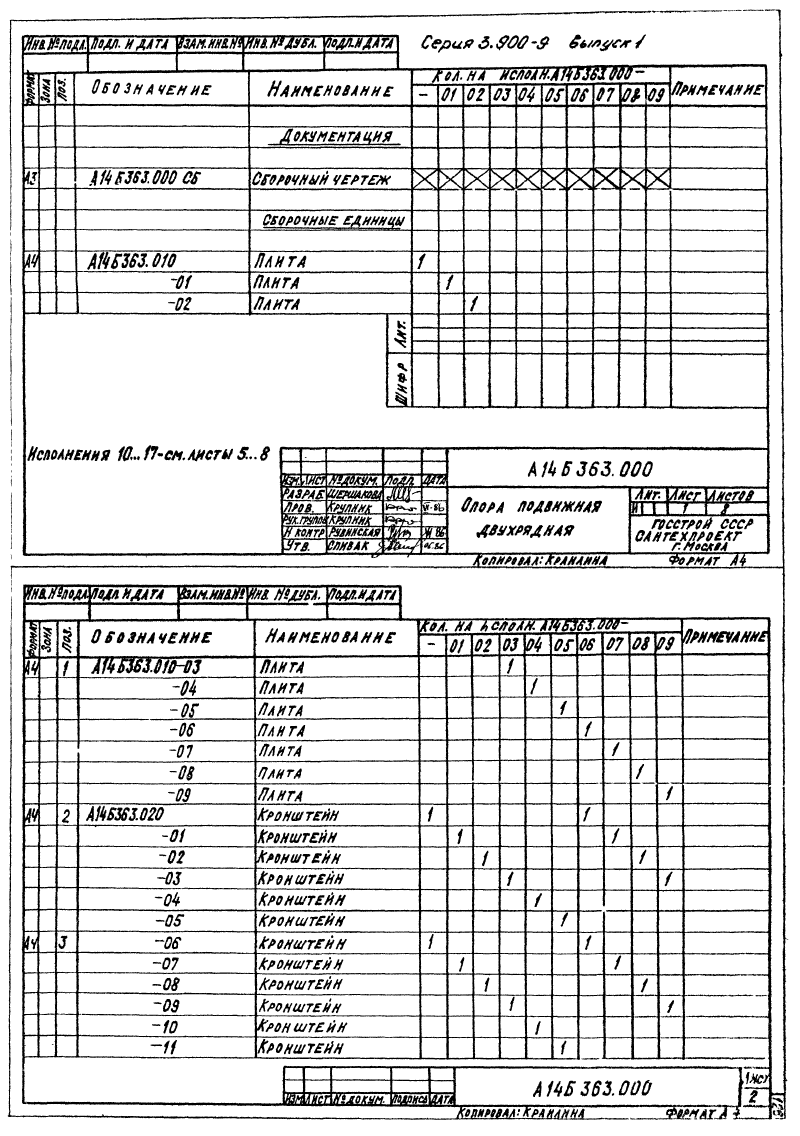 Инв. № подл. Подп. и дата Взам. инв. № Инв. № дубл. Подп. и дата Серия 3.900-9 Выпуск 1
Формат Зона Поз. Обозначение Наименование Кол. на исполн. А14Б363.000- Примечание
- 01 02 03 04 05 06 07 08 09
Документация
А3 А14Б363.000 СБ Сборочный чертеж X X X X X X X X X X
Сборочные единицы
А4 А14Б363.010 Плита 1
-01 Плита 1
-02 Плита 1
Лит.
Шифр
Исполнения 10...17-см. листы 5...8
Изм. Лист № докум. Подп. Дата
Разраб. Шершакова
Пров. Крупник VI-86
Рук. группы Крупник
Н контр Рудинская XI 86
Утв. Спивак
А14Б363.000
Опора подвижная
двухрядная
Лит. Лист Листов
И 1 8
Госстрой СССР
Сантехпроект
г. Москва
Копировал: Кранина Формат А4
Инв. № подл. Подп. и дата Взам. инв. № Инв. № дубл. Подп. и дата
Формат Зона Поз. Обозначение Наименование Кол. на исполн. А14Б363.000- Примечание
- 01 02 03 04 05 06 07 08 09
А4 1 А14Б363.010-03 Плита 1
-04 Плита 1
-05 Плита 1
-06 Плита 1
-07 Плита 1
-08 Плита 1
-09 Плита 1
А4 2 А14Б363.020 Кронштейн 1 1
-01 Кронштейн 1 1
-02 Кронштейн 1 1
-03 Кронштейн 1 1
-04 Кронштейн 1
-05 Кронштейн 1
А4 3 -06 Кронштейн 1 1
-07 Кронштейн 1 1
-08 Кронштейн 1 1
-09 Кронштейн 1 1
-10 Кронштейн 1
-11 Кронштейн 1
Изм Лист № докум. Подпись Дата
А14Б363.000
Лист
2
Копировал: Кранина Формат А4